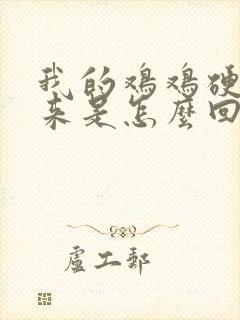 我的鸡鸡硬
来是怎麼回
盧工郵